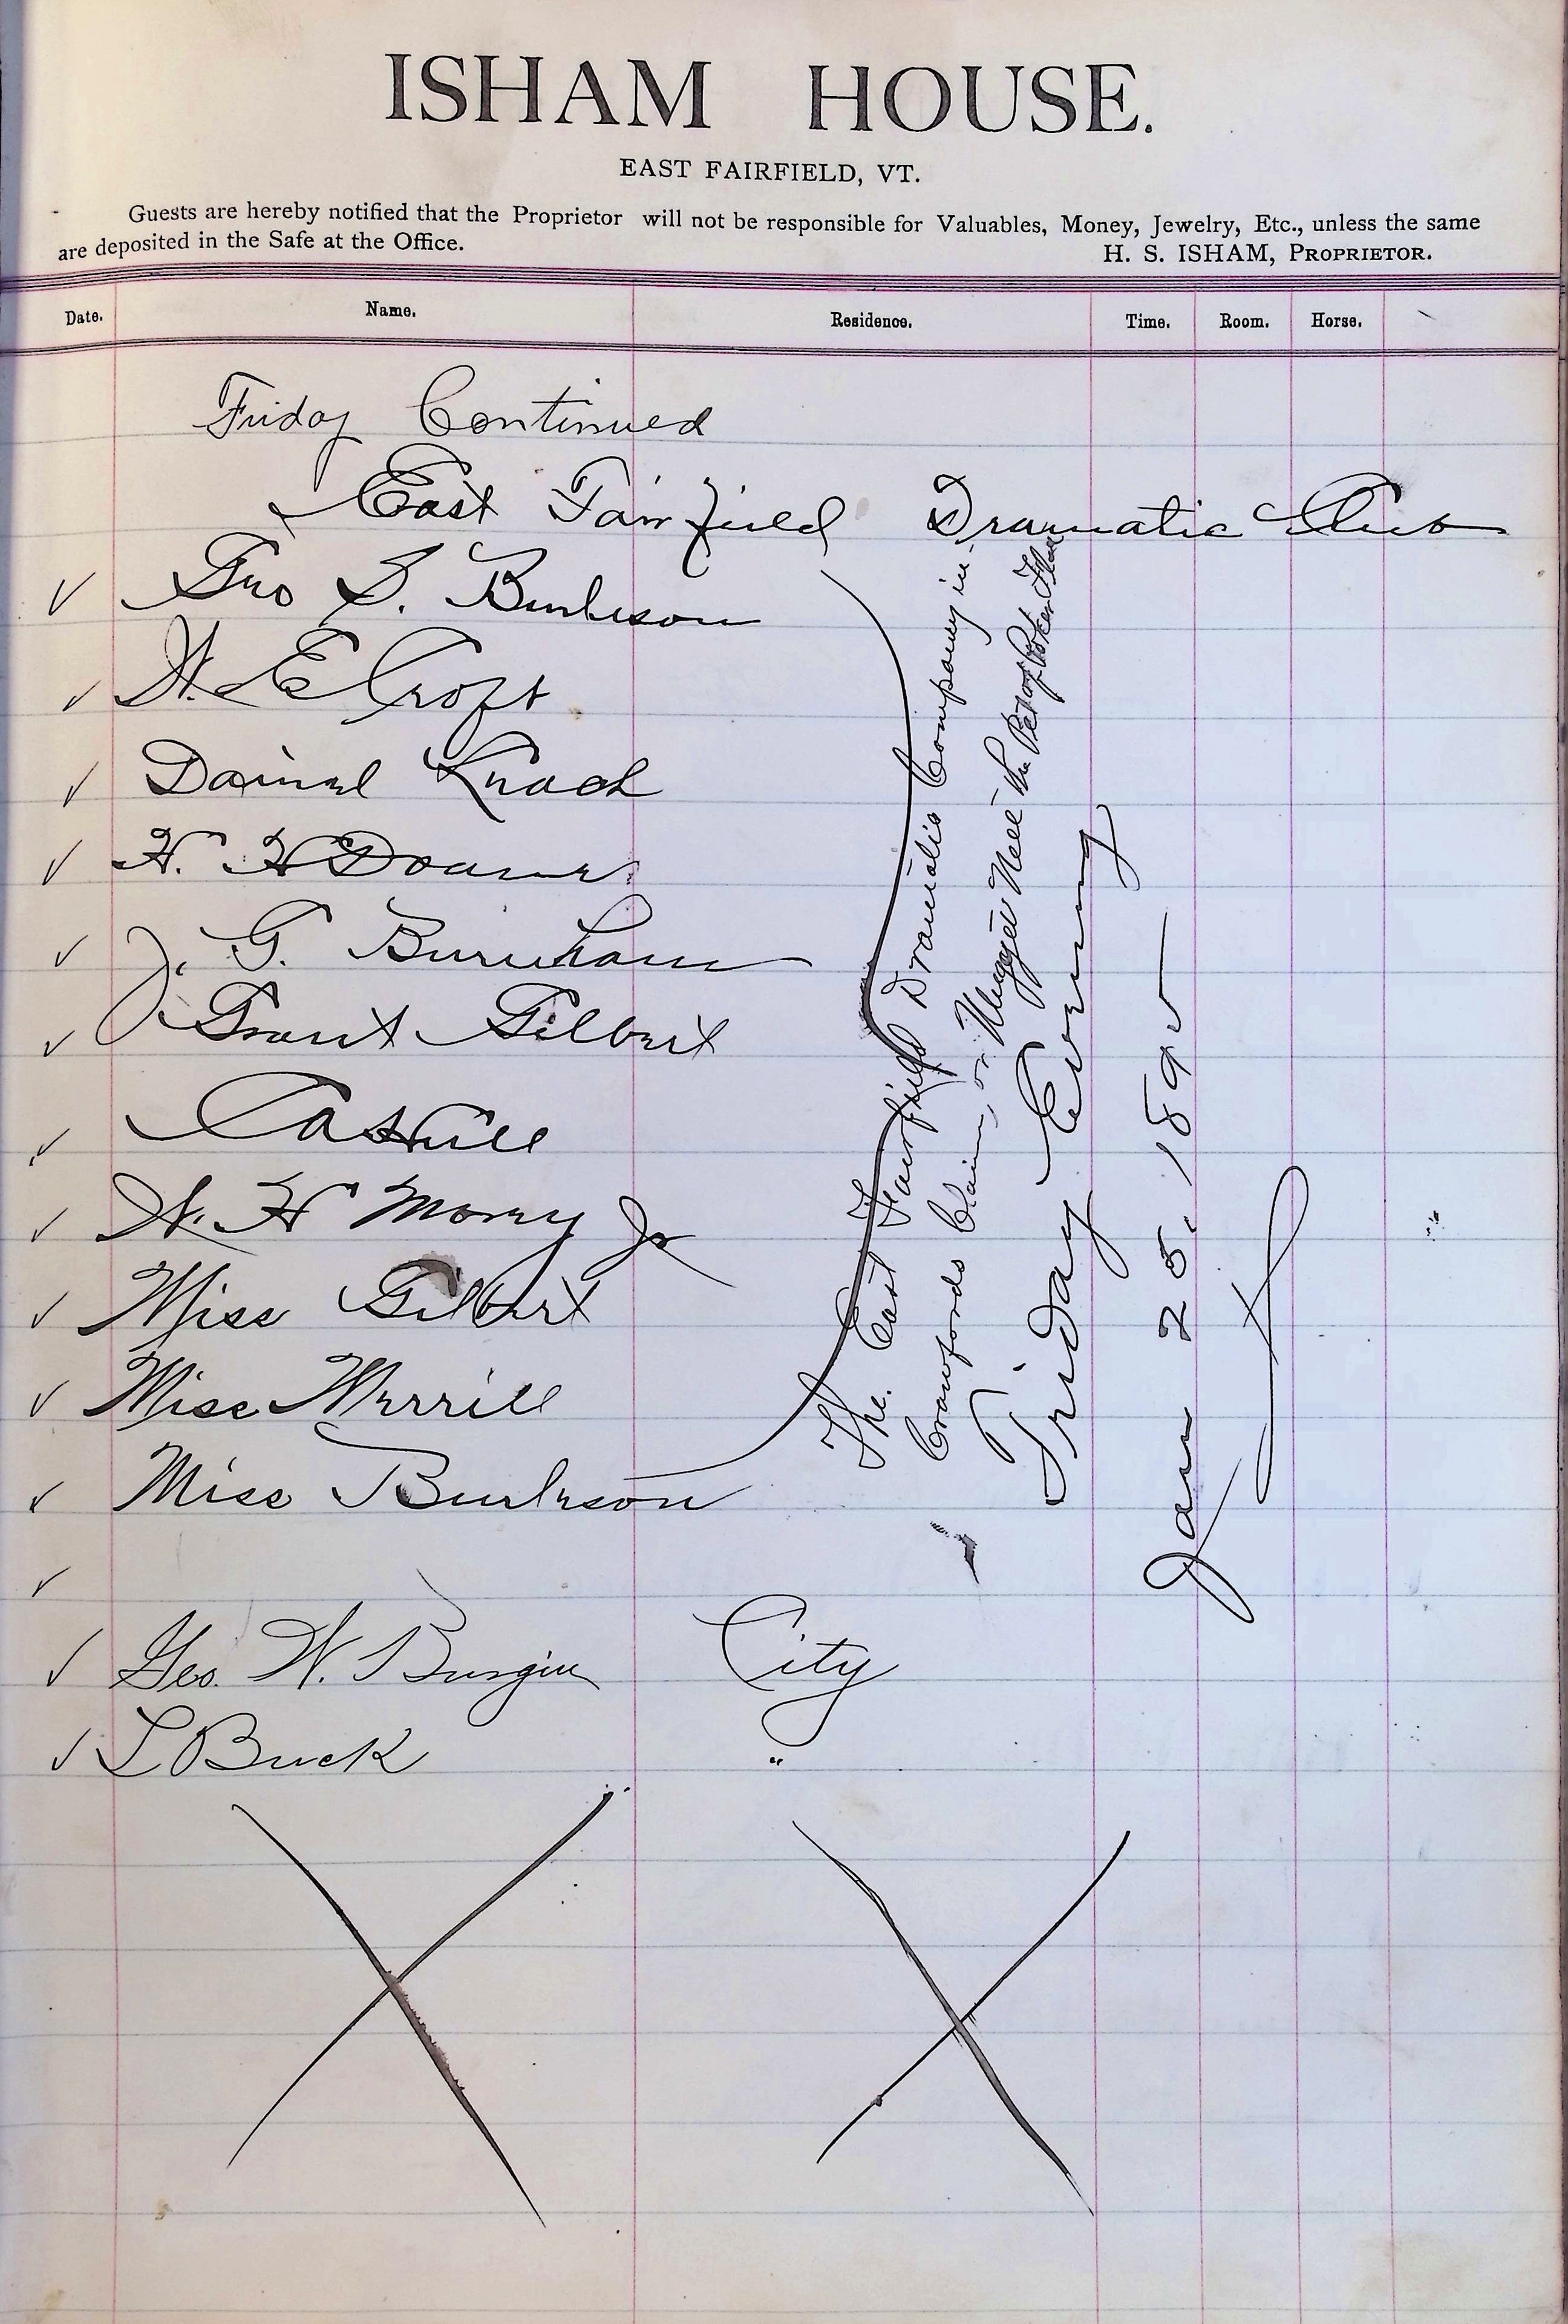 ISHAM HOUSE.
EAST FAIRFIELD, VT.
Guests are hereby notified that the Proprietor will not be responsible for Valuables, Money, Jewelry, Etc., unless the same
are deposited in the Safe at the Office.
H. S. ISHAM, PROPRIETOR.
Date. Name. Residence. Time. Room. Horse.
Friday Continued
East Fairfield Dramatic Club
S. Burleson
W. E Croft
Daniel
H. H Doane
J. G. Burnham
Grant Gilbert
W. H Morey Jr
Miss Gilbert
Miss Merrill
Miss Burleson
The East Fairfield Dramatic Company in
Crawfords Claim, or Nugget Nell the Pet of Poker Flat
Friday Evening
Jan 25, 189
Geo. W. Burgin City
L Buck "